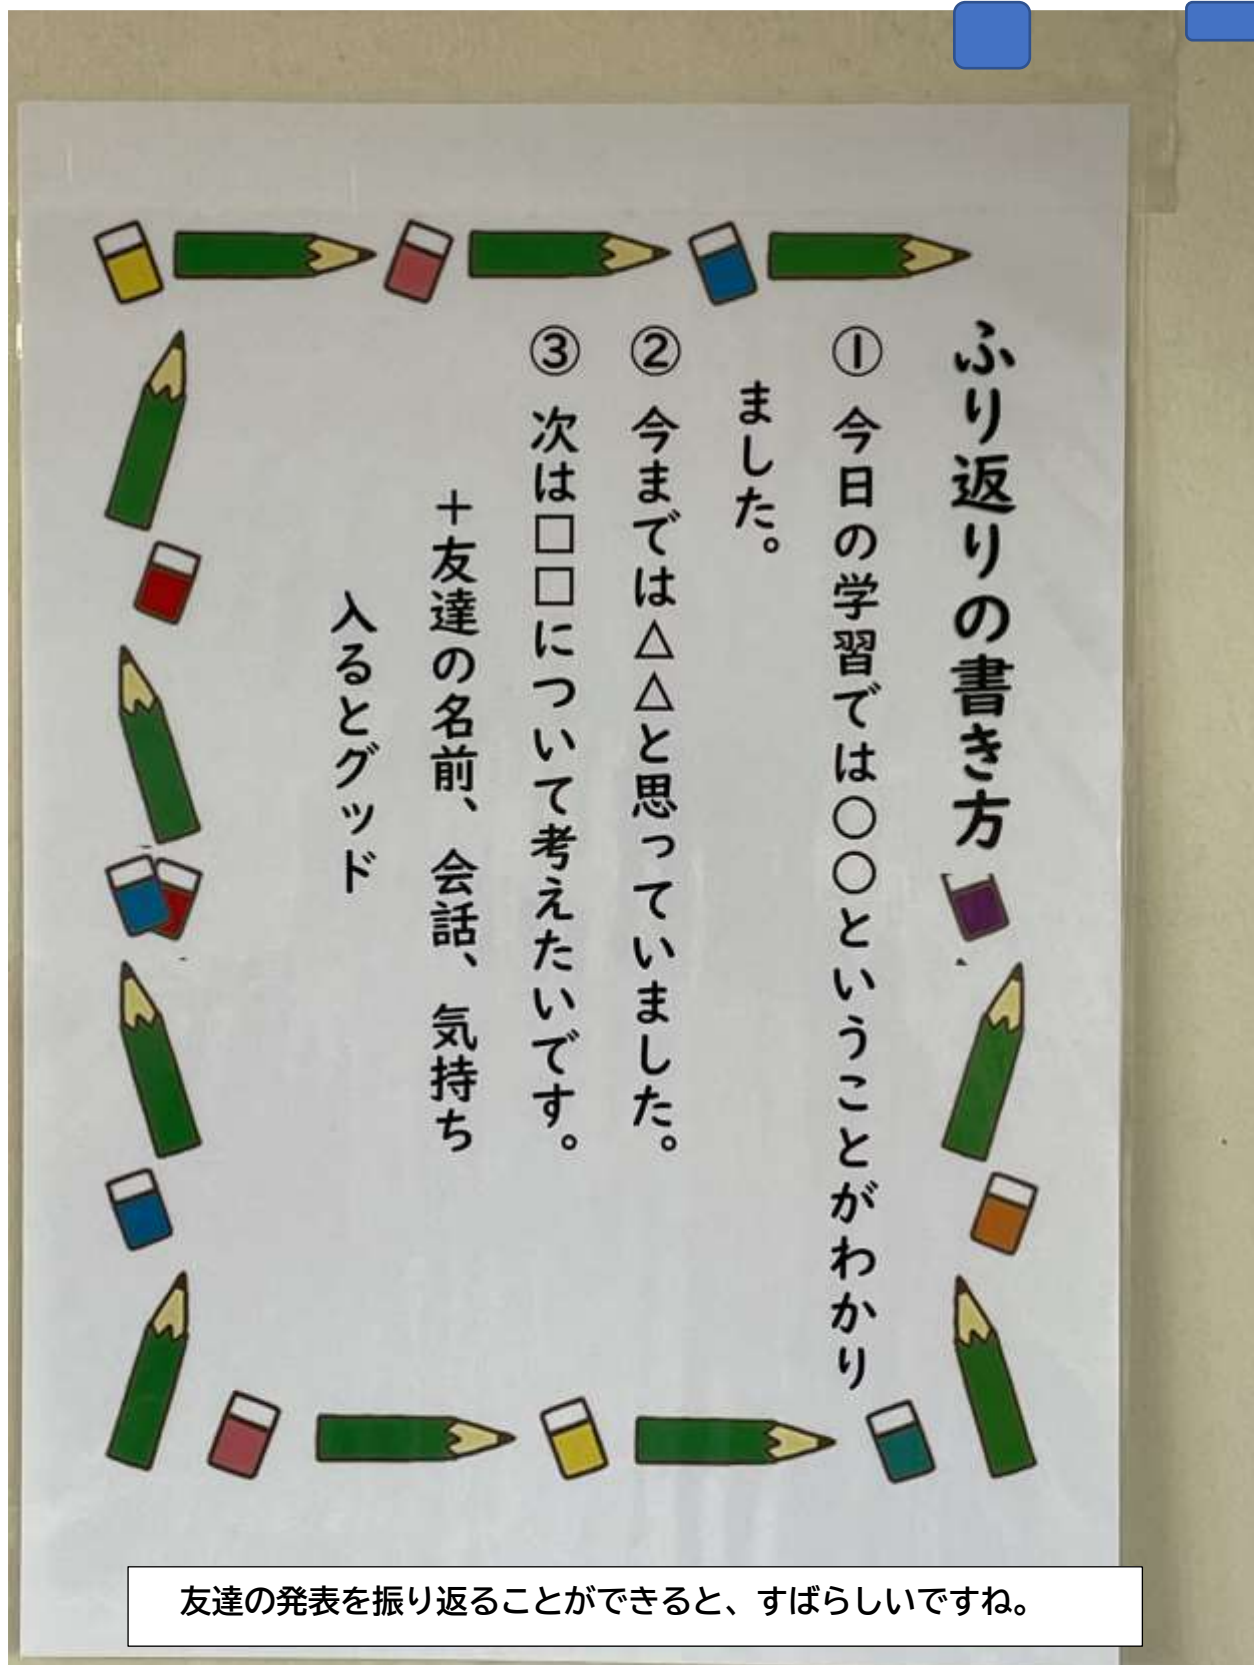 ふり返りの書き方
① 今日の学習では〇〇ということがわかり
ました。
② 今までは△△と思っていました。
③ 次は□□について考えたいです。
＋友達の名前、会話、気持ち
入るとグッド
友達の発表を振り返ることができると、すばらしいですね。